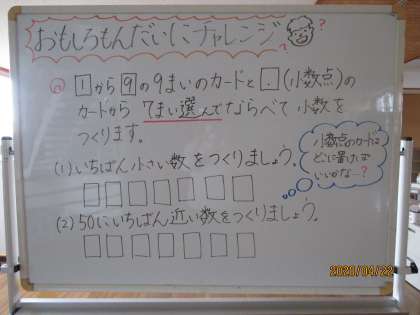 おもしろもんだいにチャレンジ
?
@ 1から9の9まいのカードと.(小数点)の
カードから 7まい選んでならべて 小数を
つくります。
小数点のカードは
どこに置けば
いいかな…?
(1) いちばん小さい数をつくりましょう。
(2) 50にいちばん近い数をつくりましょう。
2020/04/22